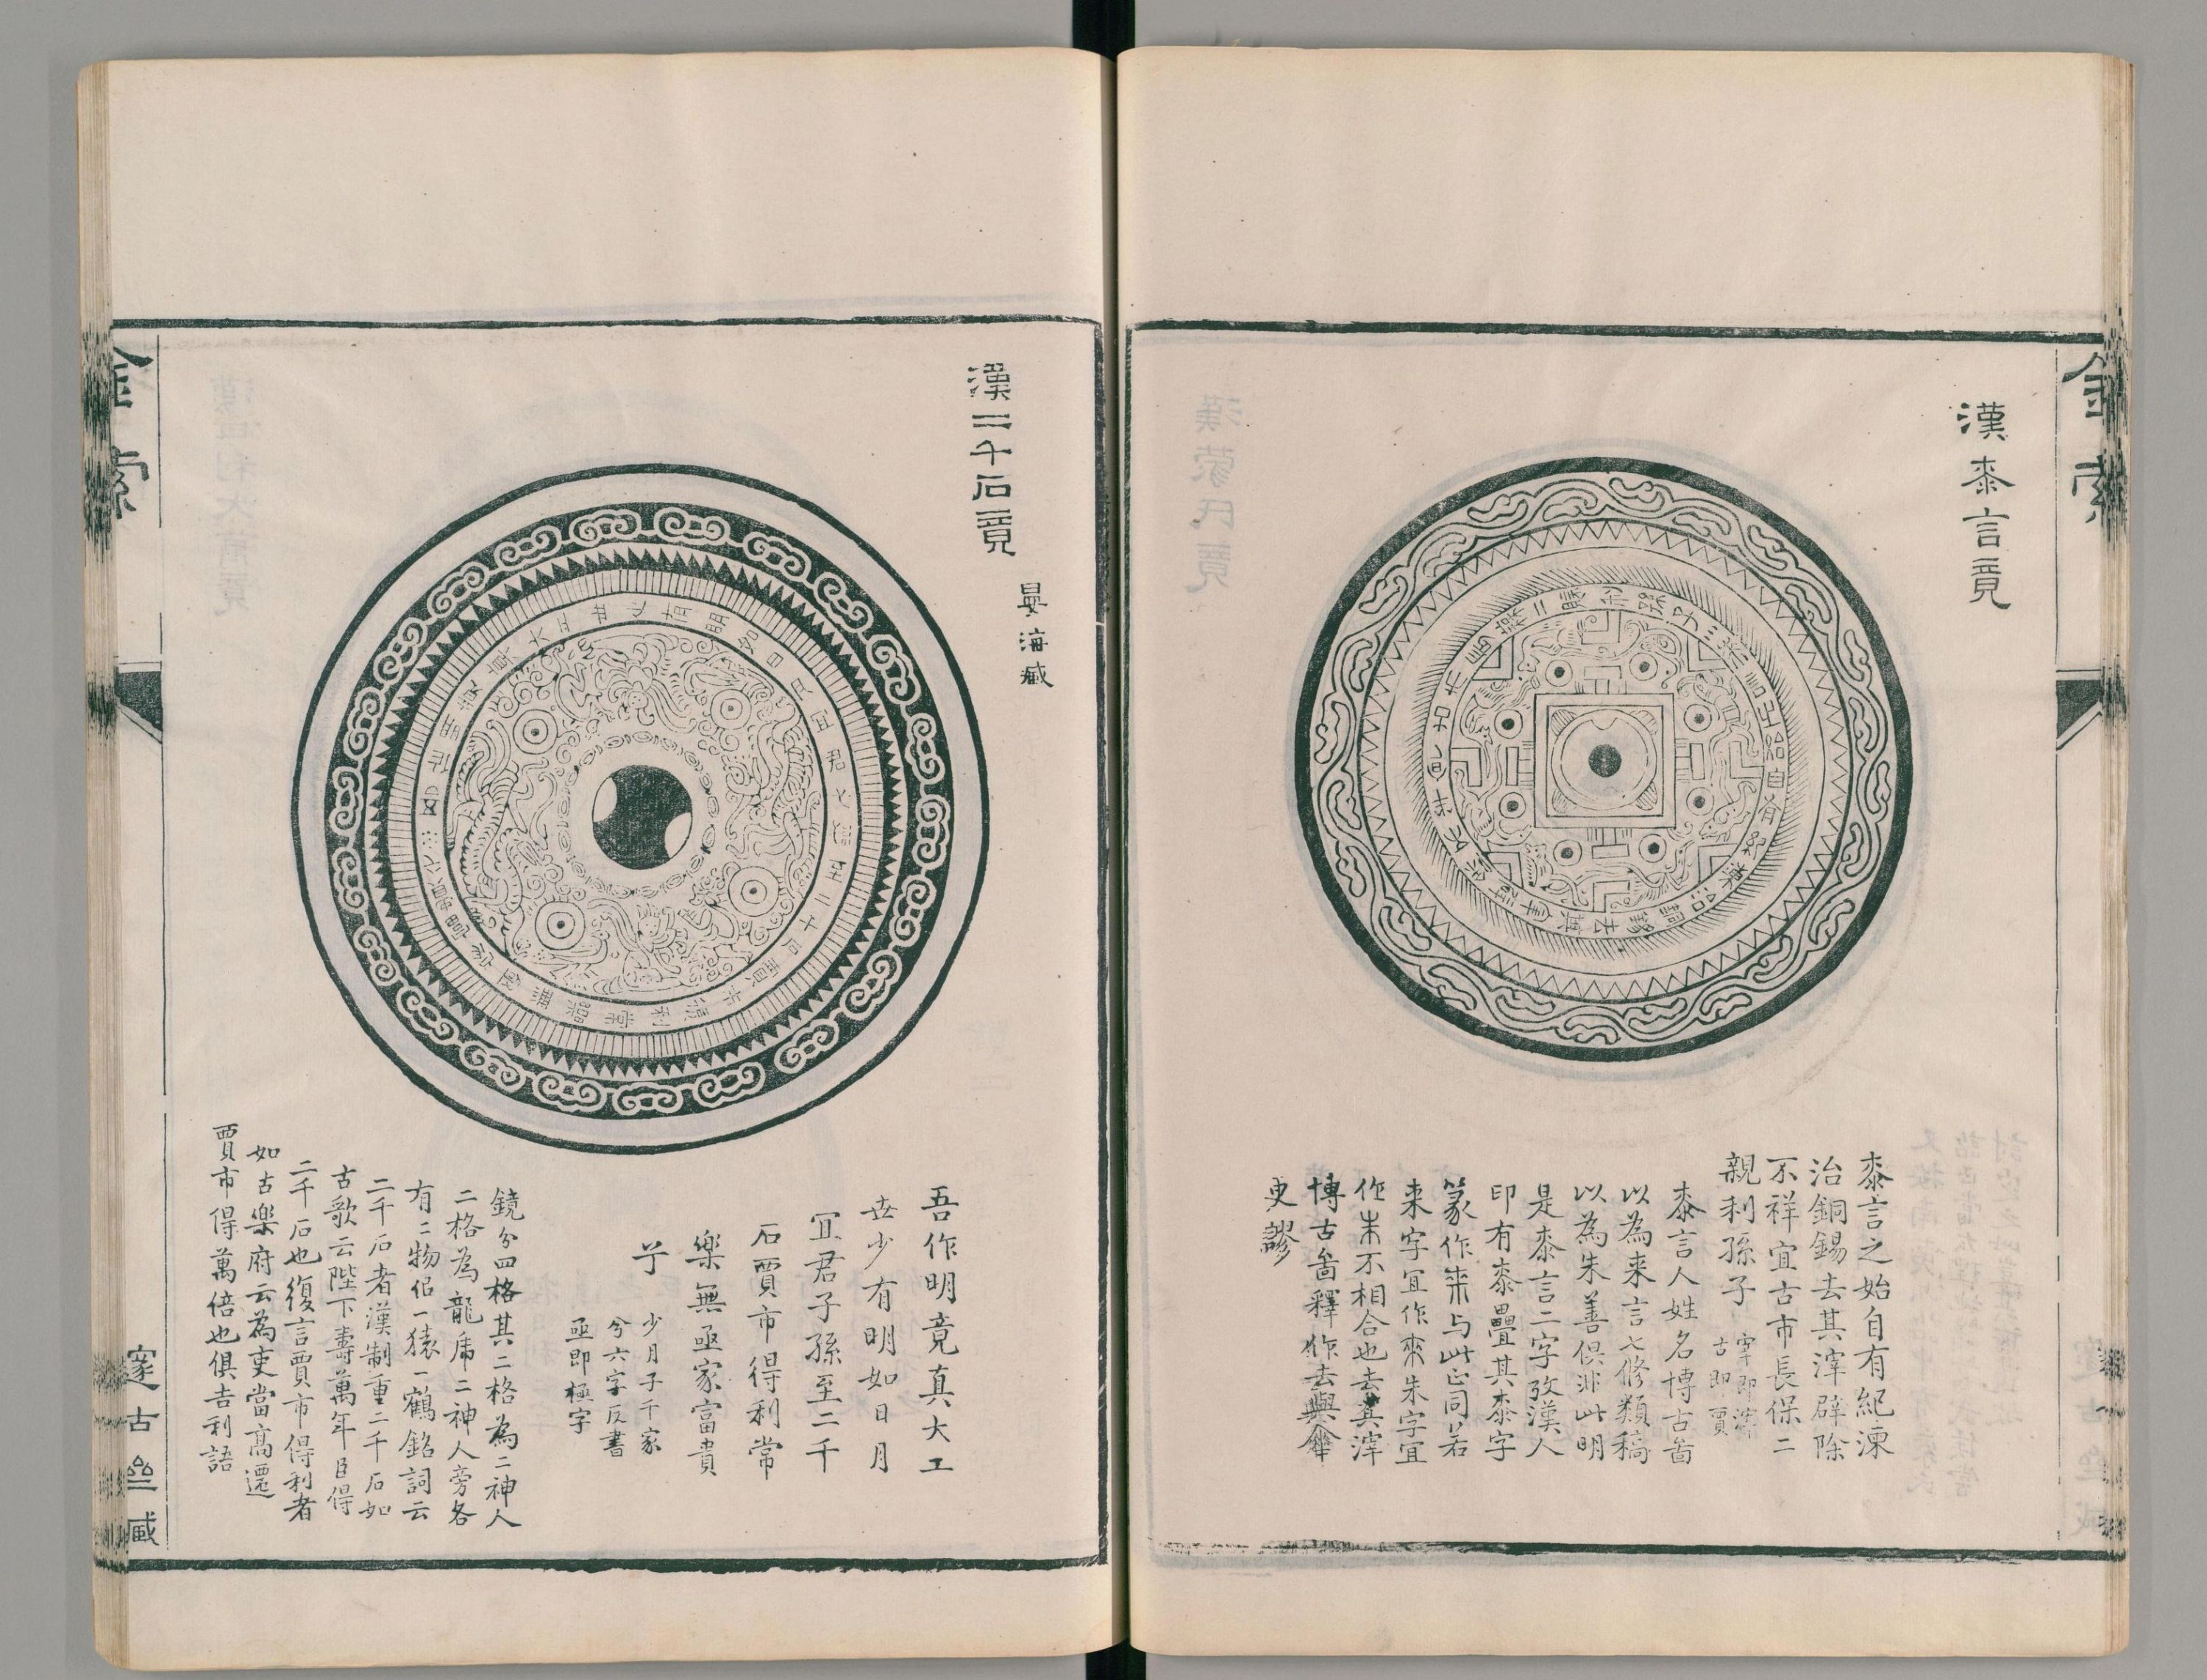 金索
漢桼言竟
桼言之始自有紀湅
治銅錫去其滓辟除
不祥宜古市長保二
親利孫子
宰即滓
古即賈
桼言人姓名博古啚
以為来言七修類稿
以為朱善俱非此明
是桼言二字攷漢人
印有桼疊其桼字
篆作桼与此正同若
来字宜作來朱字宜
作朱不相合也去其滓
博古啚釋作去與傘
更謬
漢二千石竟
晏海藏
吾作明竟真大工
世少有明如日月
宜君子孫至二千
石賈市得利常
樂無亟家富貴
兮
少月子千家
兮六字反書
亟即極字
鏡分四格其二格為二神人
二格為龍虎二神人旁各
有二物佀一猿一鶴銘詞云
二千石者漢制重二千石如
古歌云陛下壽萬年臣得
二千石也復言賈市得利者
如古樂府云為吏當高遷
賈市得萬倍也俱吉利語
金索
邃古𡉏藏